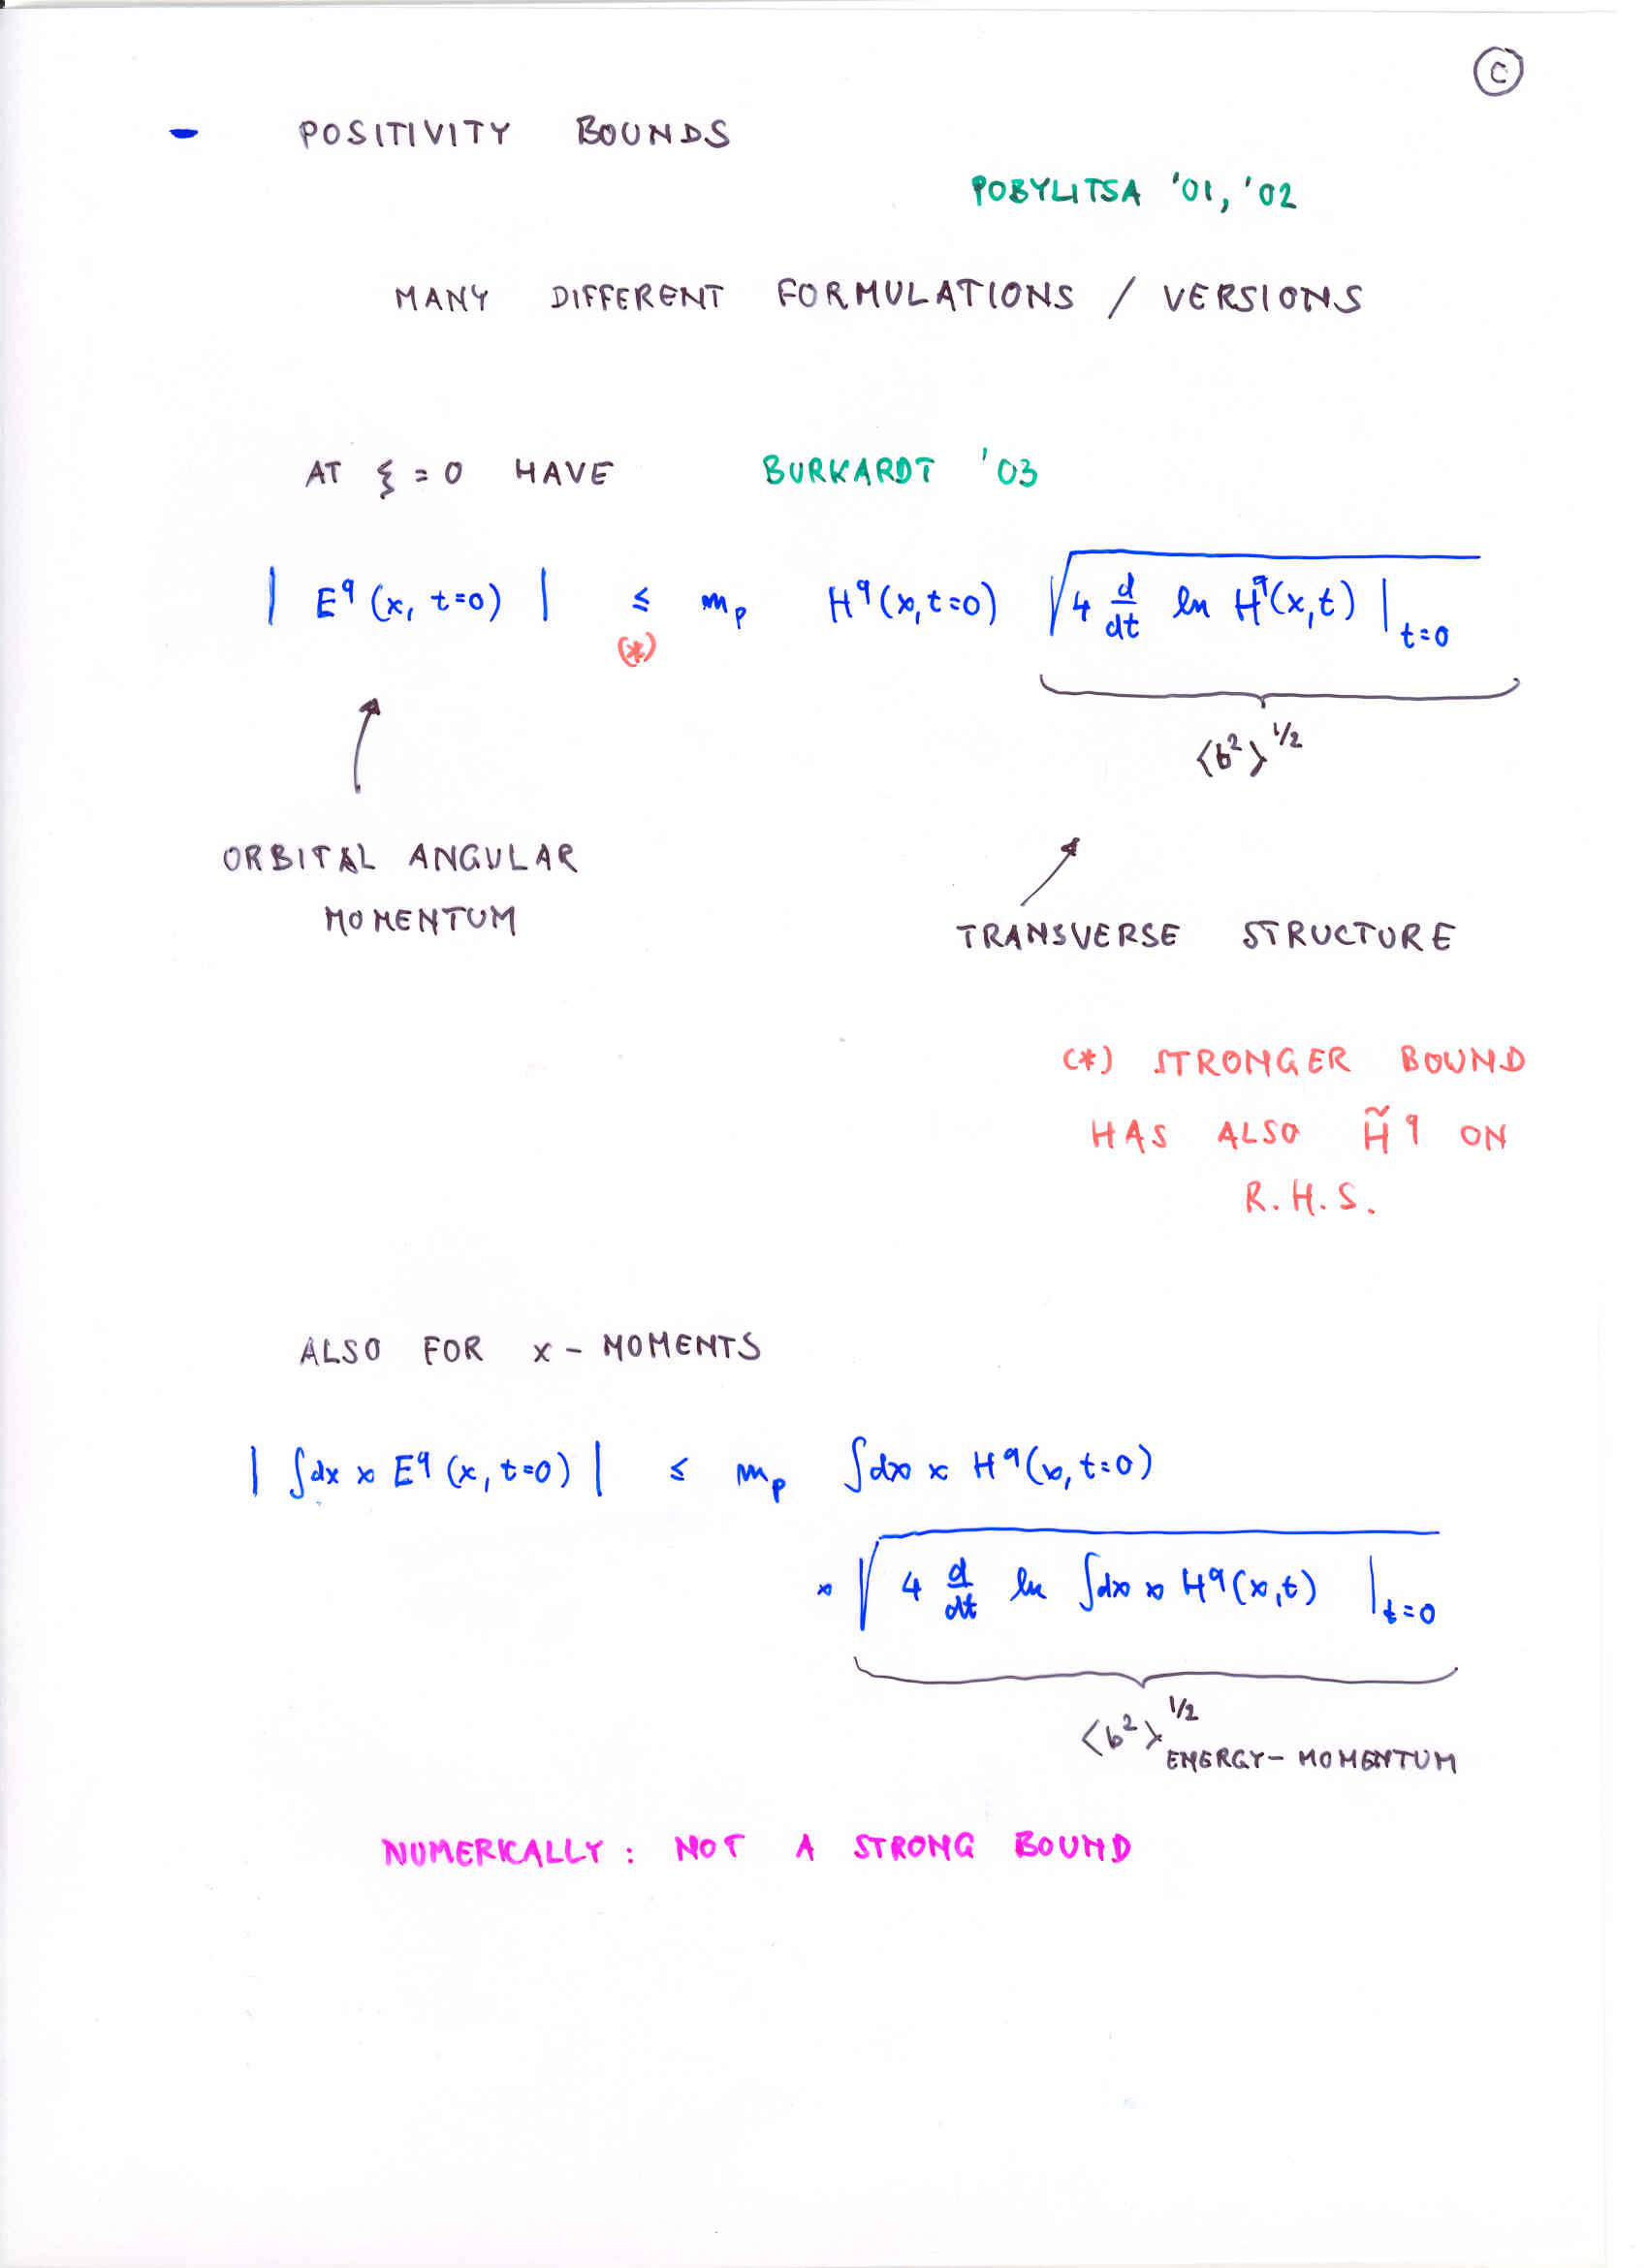 C
- POSITIVITY BOUNDS
POBYLITSA '01, '02
MANY DIFFERENT FORMULATIONS / VERSIONS
AT ξ = 0 HAVE BURKARDT '03
| E^q (x, t=0) | ≤ m_p H^q (x, t=0) √(4 d/dt ln H^q(x,t) |_{t=0})
(*)
⟨b²⟩^{1/2}
ORBITAL ANGULAR
MOMENTUM
TRANSVERSE STRUCTURE
(*) STRONGER BOUND
HAS ALSO H̃^q ON
R.H.S.
ALSO FOR x - MOMENTS
| ∫dx x E^q (x, t=0) | ≤ m_p ∫dx x H^q (x, t=0)
× √(4 d/dt ln ∫dx x H^q (x,t) |_{t=0})
⟨b²⟩^{1/2} ENERGY-MOMENTUM
NUMERICALLY : NOT A STRONG BOUND